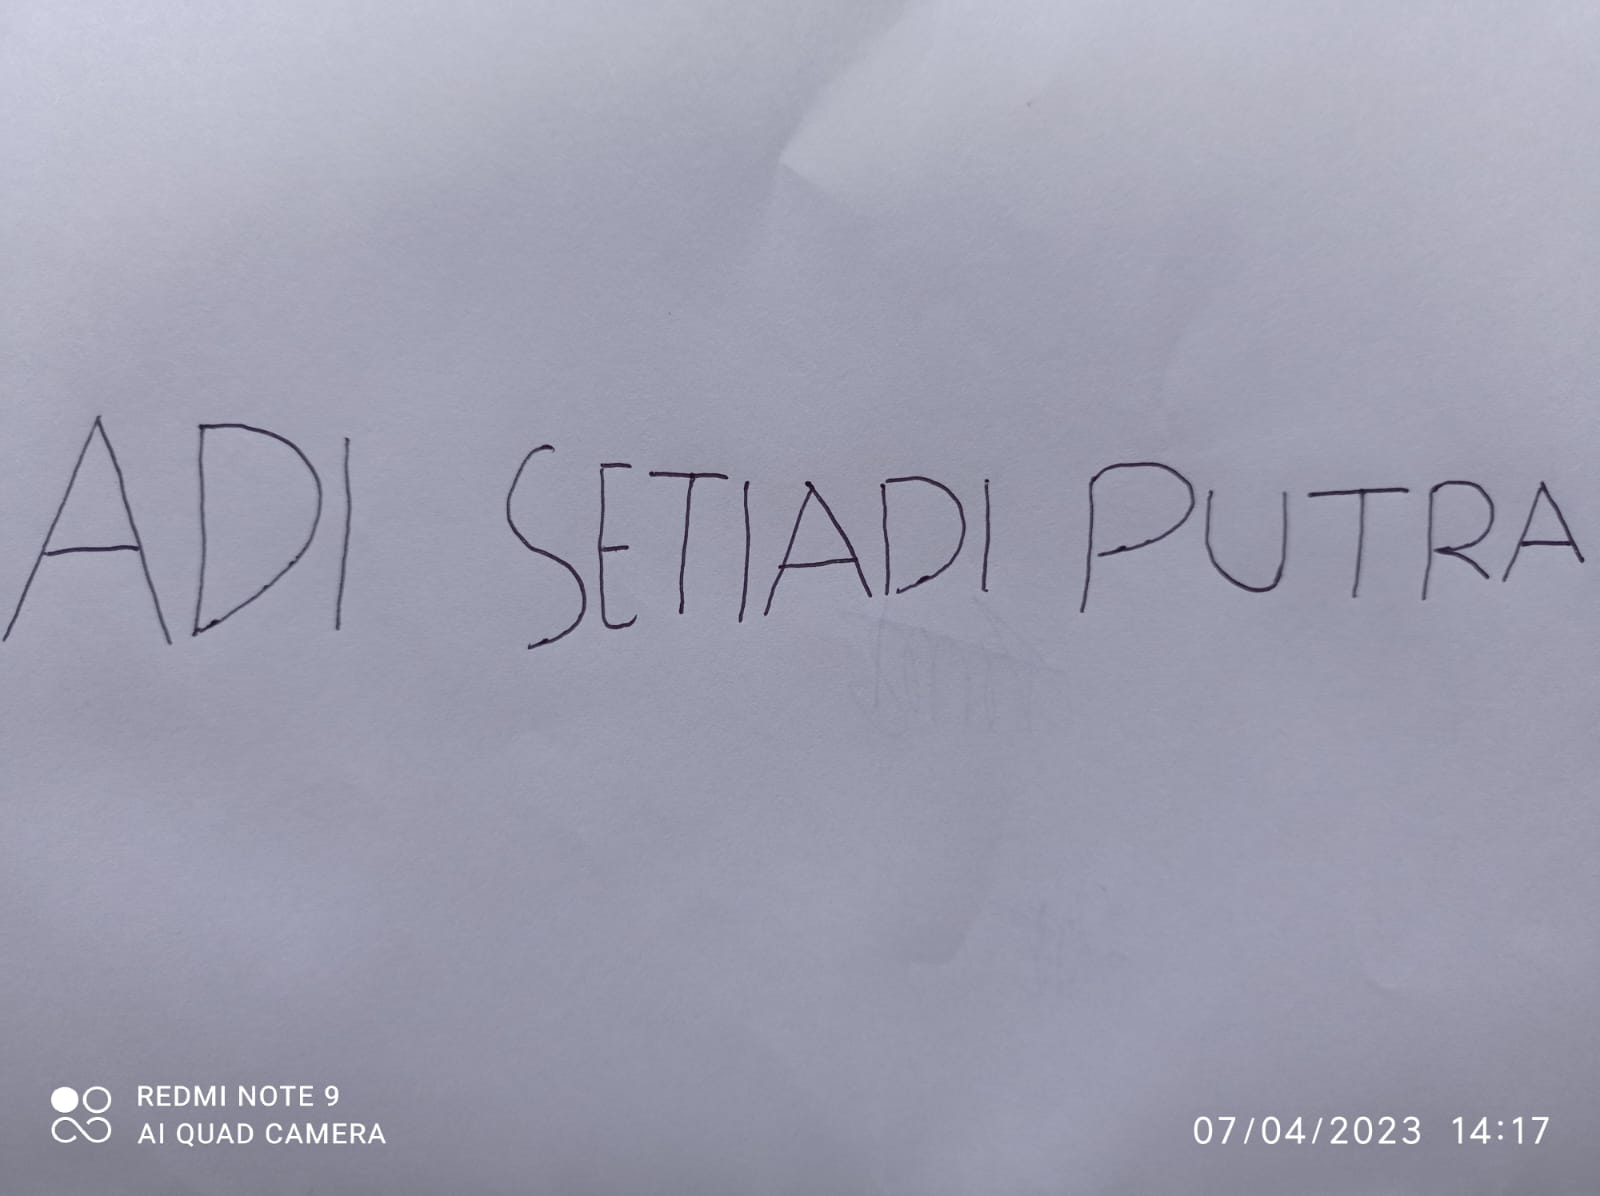 ADI SETIADI PUTRA
REDMI NOTE 9
AI QUAD CAMERA
07/04/2023 14:17